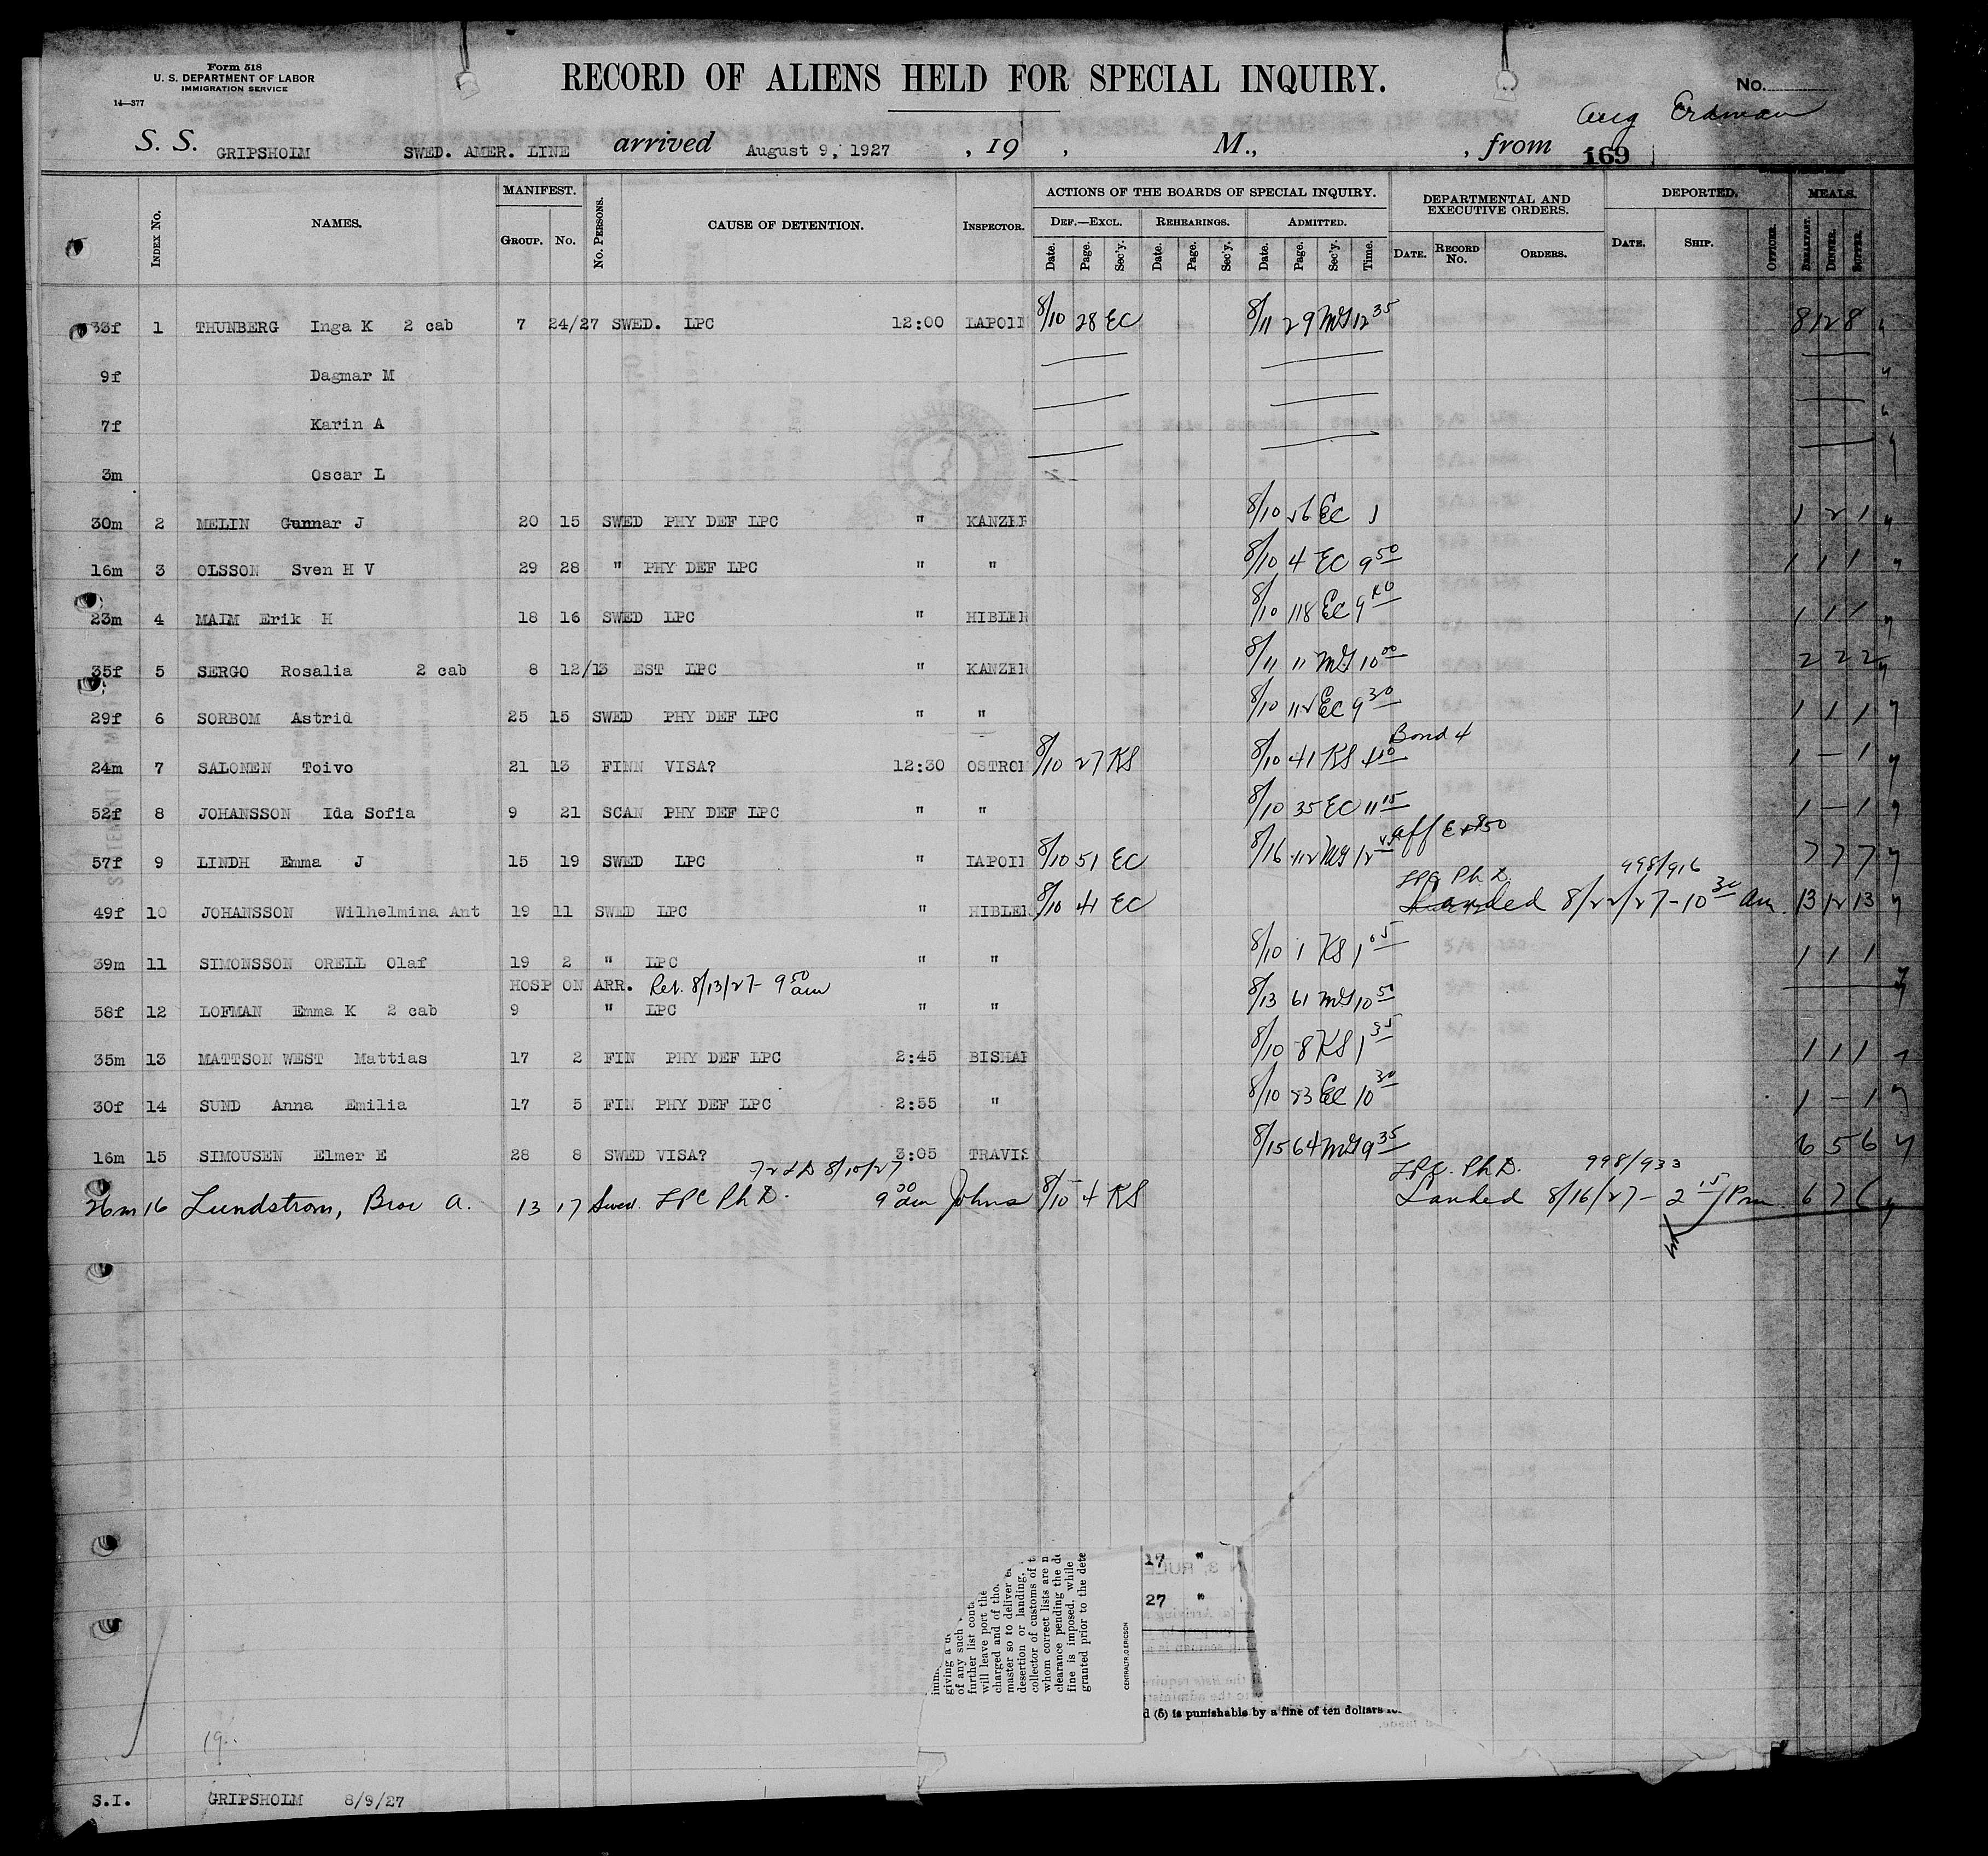 Form 518
U. S. DEPARTMENT OF LABOR
IMMIGRATION SERVICE
14—377
RECORD OF ALIENS HELD FOR SPECIAL INQUIRY.
No.
Aug Erdman
S. S. GRIPSHOLM SWED. AMER. LINE arrived August 9, 1927 , 19 , M., , from 169
Index No. NAMES. MANIFEST. Group. No. No. Persons. CAUSE OF DETENTION. Inspector. ACTIONS OF THE BOARDS OF SPECIAL INQUIRY. DEPARTMENTAL AND EXECUTIVE ORDERS. DEPORTED. MEALS.
Def.—Excl. Rehearings. Admitted.
Date. Page. Sec'y. Date. Page. Sec'y. Date. Page. Sec'y. Time. Date. Record No. Orders. Date. Ship. Officer. Breakfast. Dinner. Supper.
33f 1 THUNBERG Inga K 2 cab 7 24/27 SWED. LPC 12:00 LAPOIN 8/10 28 EC 8/11 29 MG 12 35 8 12 8
9f Dagmar M
7f Karin A
3m Oscar L
30m 2 MELIN Gunnar J 20 15 SWED PHY DEF LPC " KANZER 8/10 EC 1 1 2 1
16m 3 OLSSON Sven H V 29 28 " PHY DEF LPC " " 8/10 4 EC 9 50 1 1 1
23m 4 MAIM Erik H 18 16 SWED LPC " HIBLER 8/10 118 EC 9 40 1 1 1
35f 5 SERGO Rosalia 2 cab 8 12/13 EST LPC " KANZER 8/11 11 MG 10 00 2 2 2
29f 6 SORBOM Astrid 25 15 SWED PHY DEF LPC " " 8/10 112 EC 9 30 1 1 1
Bond 4
24m 7 SALONEN Toivo 21 13 FINN VISA? 12:30 OSTRO 8/10 27 KS 8/10 41 KS 1 — 1
52f 8 JOHANSSON Ida Sofia 9 21 SCAN PHY DEF LPC " " 8/10 35 EC 11 15 1 — 1
57f 9 LINDH Emma J 15 19 SWED LPC " LAPOIN 8/10 51 EC 8/16 112 MG 12 aff 7 7 7
LPC Ph D. 998/916
49f 10 JOHANSSON Wilhelmina Ant 19 11 SWED LPC " HIBLER 8/10 41 EC Landed 8/22/27 - 10 30 am. 13 12 13
39m 11 SIMONSSON ORELL Olaf 19 2 " LPC " " 8/10 1 KS 1 05 1 1 1
HOSP ON ARR. Ret. 8/13/27 - 9 50 am
58f 12 LOFMAN Emma K 2 cab 9 " LPC " " 8/13 61 MG 10 50
35m 13 MATTSON WEST Mattias 17 2 FIN PHY DEF LPC 2:45 BISHAR 8/10 8 KS 1 35 1 1 1
30f 14 SUND Anna Emilia 17 5 FIN PHY DEF LPC 2:55 " 8/10 53 EC 10 30 1 — 1
16m 15 SIMOUSEN Elmer E 28 8 SWED VISA? 3:05 TRAVIS 8/15 64 MG 9 35 6 5 6
8/10/27 LPC. Ph D. 998/933
26m 16 Lundstrom, Bror A. 13 17 Swed. LPC Ph D. 9 00 am Johns 8/10 4 KS Landed 8/16/27 - 2 15 Pm. 6 7 6
17 "
27 "
giving a
of any such
further list cont
will leave port the
charged and of tho
master so to deliver
desertion or landing,
collector of customs of
whom correct lists are n
clearance pending the de
fine is imposed, while
granted prior to the dete
CENTRALTR. O ERICSON
d (5) is punishable by a fine of ten dollars
19.
S.I. GRIPSHOLM 8/9/27